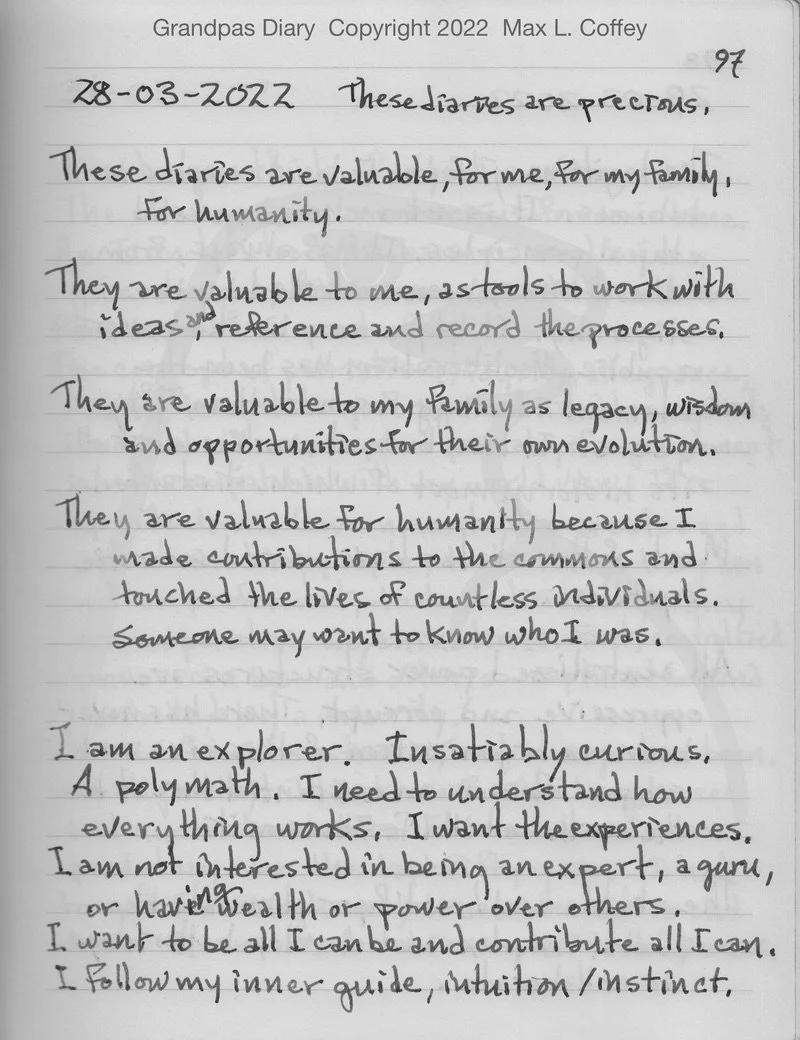 Grandpas Diary Copyright 2022 Max L. Coffey
97
28-03-2022 These diaries are precious.
These diaries are valuable, for me, for my family,
for humanity.
They are valuable to me, as tools to work with
ideas, and reference and record the processes.
They are valuable to my family as legacy, wisdom
and opportunities for their own evolution.
They are valuable for humanity because I
made contributions to the commons and
touched the lives of countless individuals.
Someone may want to know who I was.
I am an explorer. Insatiably curious.
A polymath. I need to understand how
everything works. I want the experiences.
I am not interested in being an expert, a guru,
or having wealth or power over others.
I want to be all I can be and contribute all I can.
I follow my inner guide, intuition/instinct.